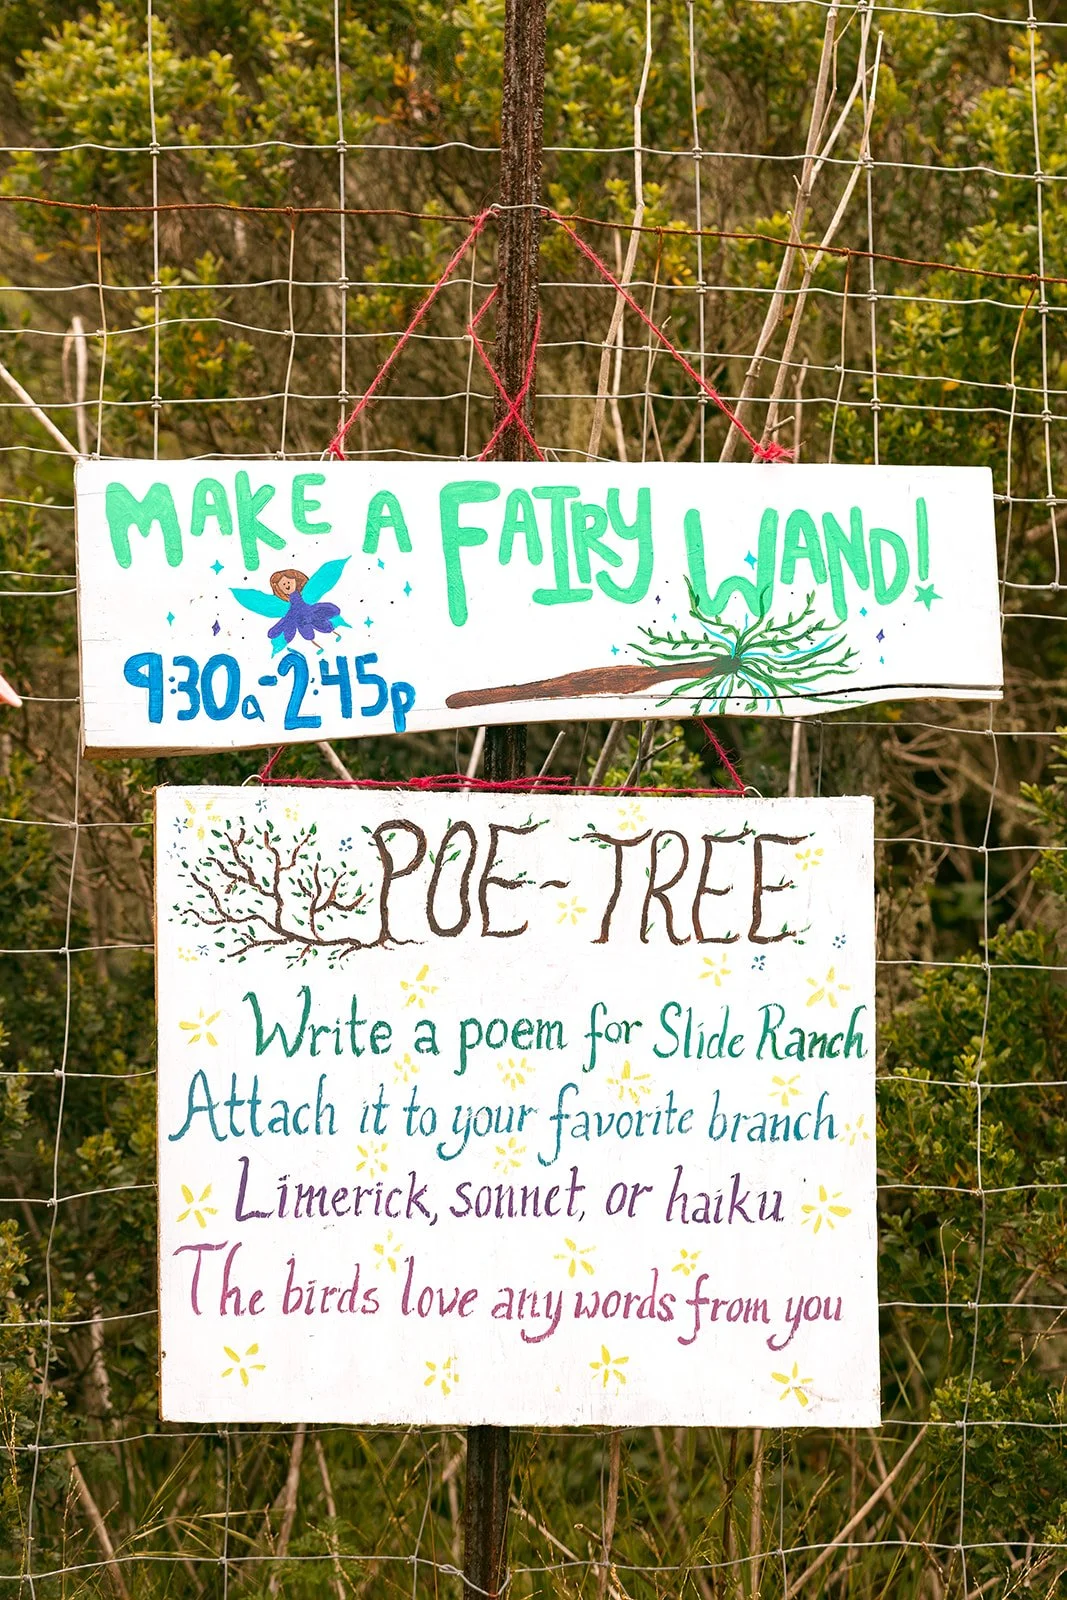 MAKE A FAIRY WAND!
9:30a-2:45p
POE-TREE
Write a poem for Slide Ranch
Attach it to your favorite branch
Limerick, sonnet, or haiku
The birds love any words from you